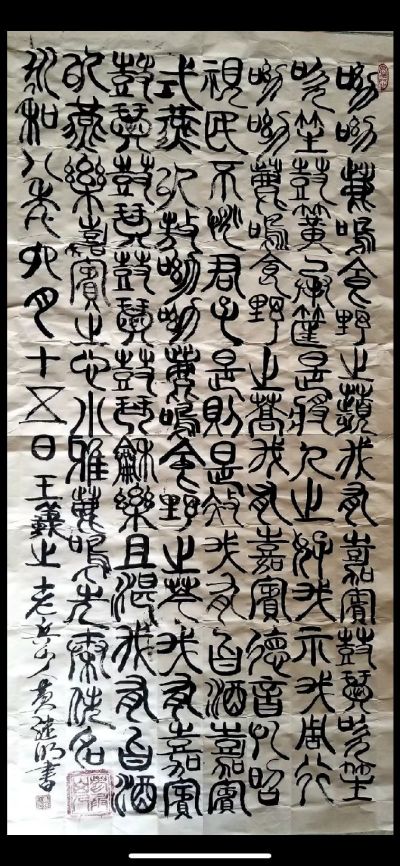 呦呦鹿鳴食野之蘋我有嘉賓鼓瑟吹笙
吹笙鼓簧承筐是將人之好我示我周行
呦呦鹿鳴食野之蒿我有嘉賓德音孔昭
視民不恌君子是則是效我有旨酒嘉賓
式燕以敖呦呦鹿鳴食野之芩我有嘉賓
鼓瑟鼓琴鼓瑟鼓琴龢樂且湛我有旨酒
以燕樂嘉賓之心小雅鹿鳴先秦佚名
永和八年月十五日王羲之老兵黄明書